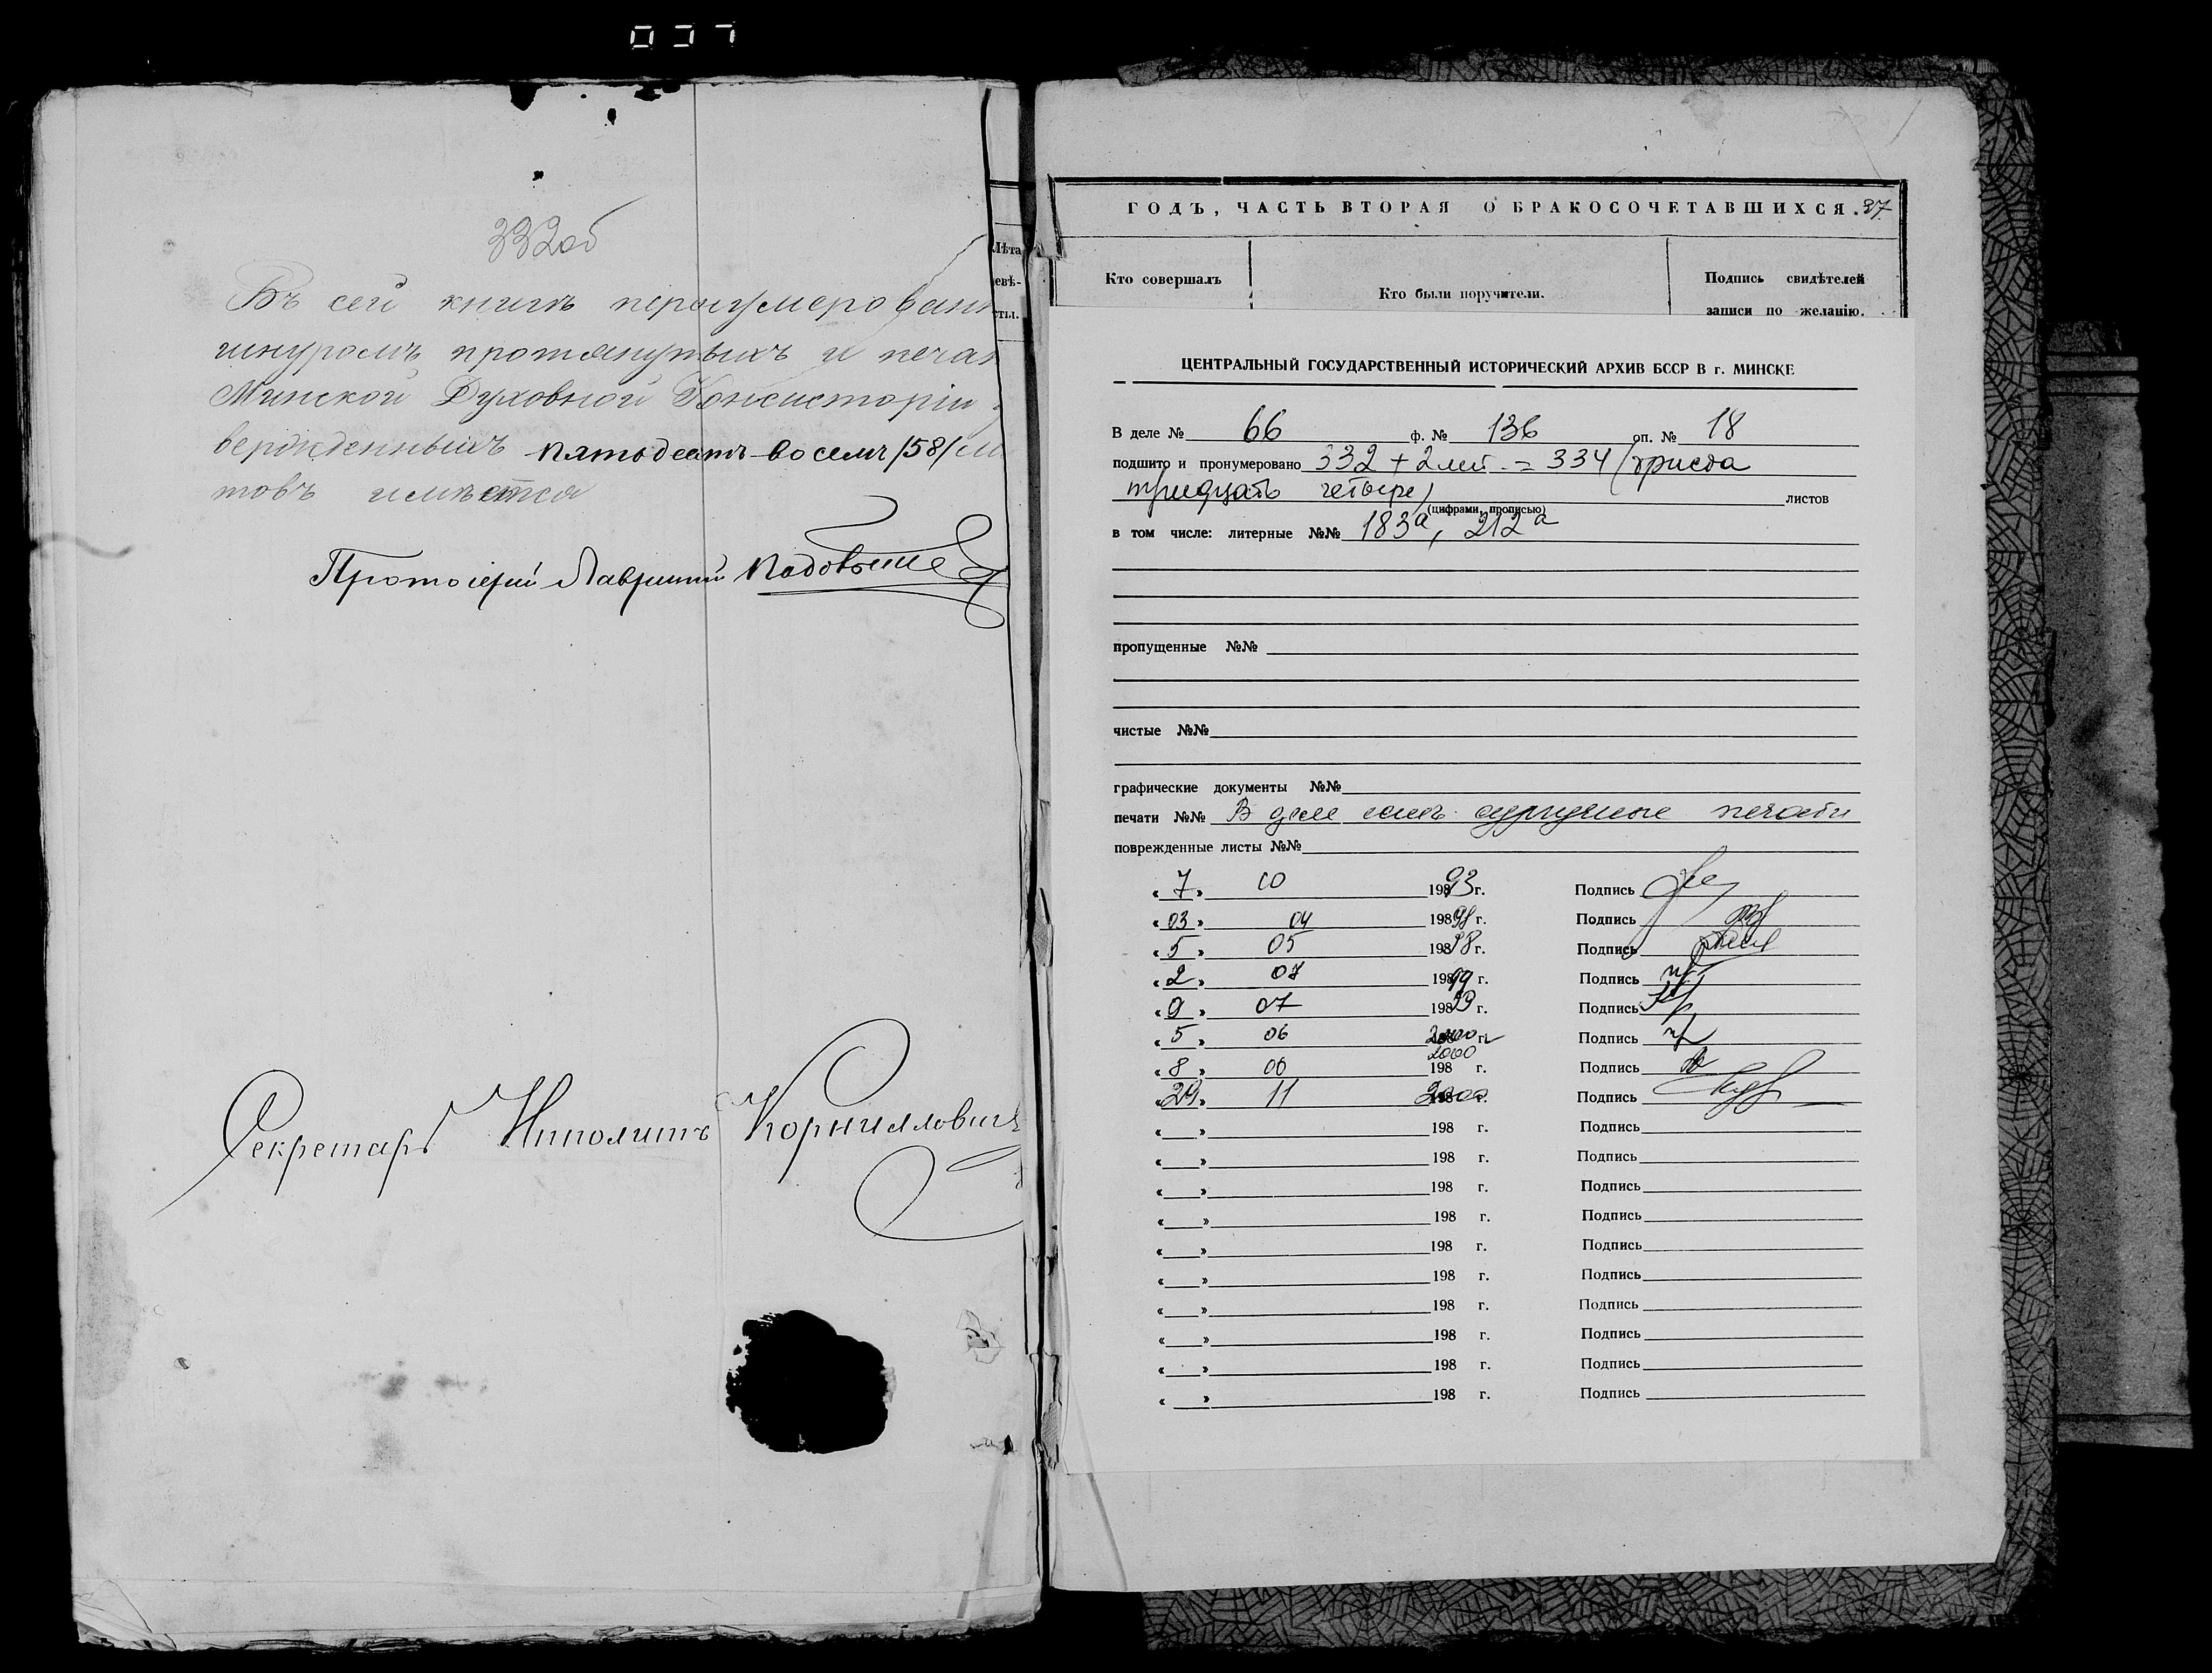 037
332об
Въ сей книгѣ перенумерован
шнуромъ протянутыхъ и печат
Минской Духовной Консисторіи
вержденныхъ пятьдесятъ восемъ /58/ ли
товъ имѣется
Протоіерей Лаврентій
Секретарь Ипполитъ Корниловичъ
Лѣта
невѣ-
сты.
ГОДЪ, ЧАСТЬ ВТОРАЯ О БРАКОСОЧЕТАВШИХСЯ. 37
Кто совершалъ
Кто были поручители.
Подпись свидѣтелей
записи по желанію.
ЦЕНТРАЛЬНЫЙ ГОСУДАРСТВЕННЫЙ ИСТОРИЧЕСКИЙ АРХИВ БССР В г. МИНСКЕ
В деле № 66 ф. № 136 оп. № 18
подшито и пронумеровано 332 + 2 лит. = 334 (триста
тридцать четыре) листов
(цифрами, прописью)
в том числе: литерные №№ 183а, 212а
пропущенные №№
чистые №№
графические документы №№
печати №№ В деле есть сургучные печати
поврежденные листы №№
« 7 » 10 19893 г. Подпись
« 03 » 04 19898 г. Подпись
« 5 » 05 19898 г. Подпись
« 2 » 07 19899 г. Подпись
« 9 » 07 19899 г. Подпись
« 5 » 06 2000 г. Подпись
« 8 » 06 2000 198 г. Подпись
« 29 » 11 2000 г. Подпись
« » 198 г. Подпись
« » 198 г. Подпись
« » 198 г. Подпись
« » 198 г. Подпись
« » 198 г. Подпись
« » 198 г. Подпись
« » 198 г. Подпись
« » 198 г. Подпись
« » 198 г. Подпись
« » 198 г. Подпись